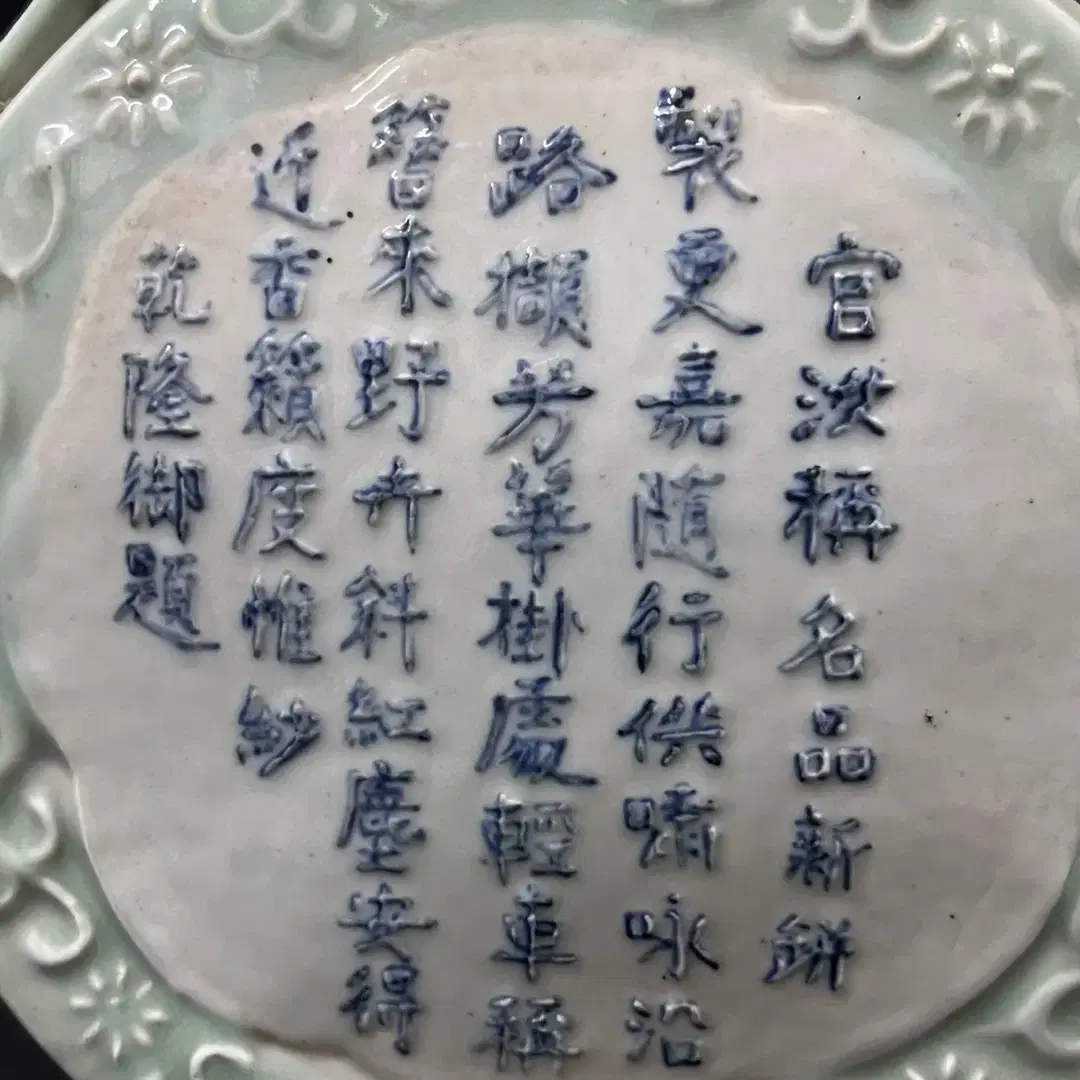 官稱名品新缾
製更嘉隨行供嘯咏沿
路擷芳華掛處輕車稱
簪來野卉斜紅塵安得
近香籟度帷紗
乾隆御題